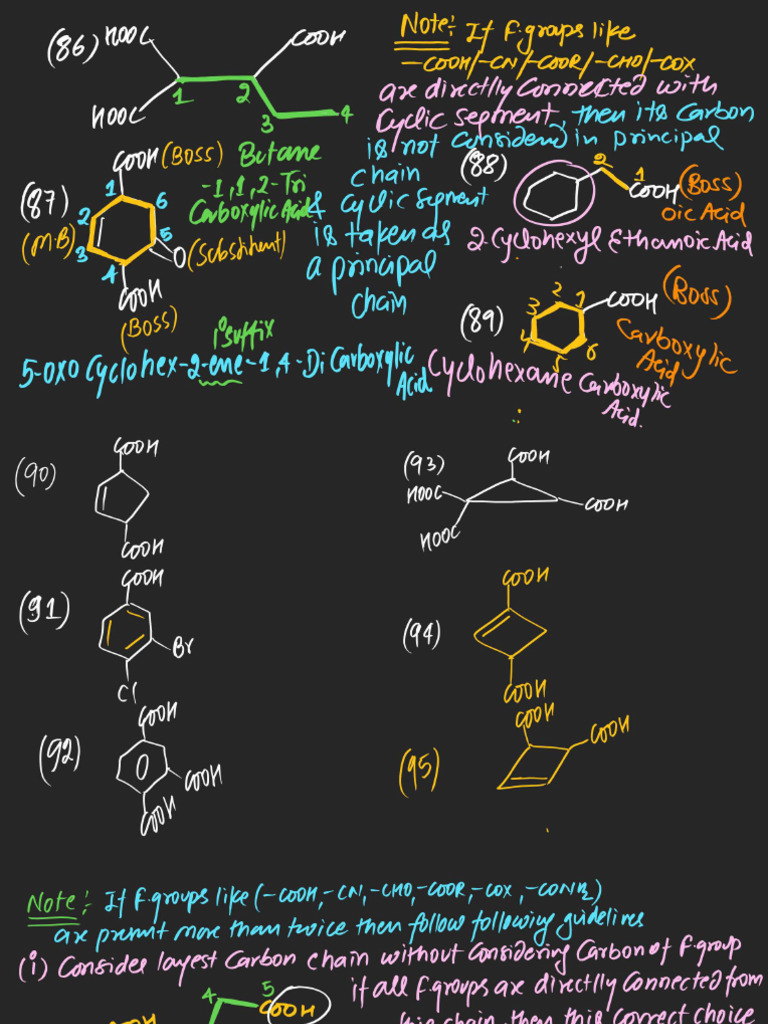 (86) HOOC COOH
HOOC
1 2 3 4
Butane
-1,1,2-Tri
Carboxylic Acid
Note:- If F.groups like
-COOH/-CN/-COOR/-CHO/-COX
are directly Connected with
Cyclic segment, then its Carbon
is not Considered in principal
chain
& cyclic segment
is taken as
a principal
chain
(87) COOH (Boss)
1 2 3 4 5 6
(M.B)
O (Substituent)
COOH
(Boss)
1° suffix
5-oxo Cyclohex-2-ene-1,4-DiCarboxylic
Acid
(88) 2 1
COOH (Boss)
oic Acid
2-Cyclohexyl Ethanoic Acid
(89) COOH (Boss)
1 2 3 4 5 6
Carboxylic
Acid
Cyclohexane Carboxylic
Acid.
(90) COOH
COOH
(91) COOH
Br
Cl
(92) COOH
COOH
COOH
(93) COOH
HOOC COOH
HOOC
(94) COOH
COOH
(95) COOH COOH
Note:- If F.groups like (-COOH,-CN,-CHO,-COOR,-COX,-CONH2)
are present more than twice then follow following guidelines
(i) Consider largest Carbon chain without Considering Carbon of F.group
if all F.groups are directly Connected from
chain, then this correct choice
4 5
COOH